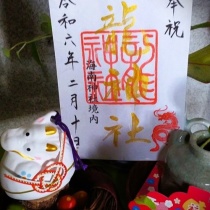 奉祝
龍神社
海南神社境内
令和六年二月十日